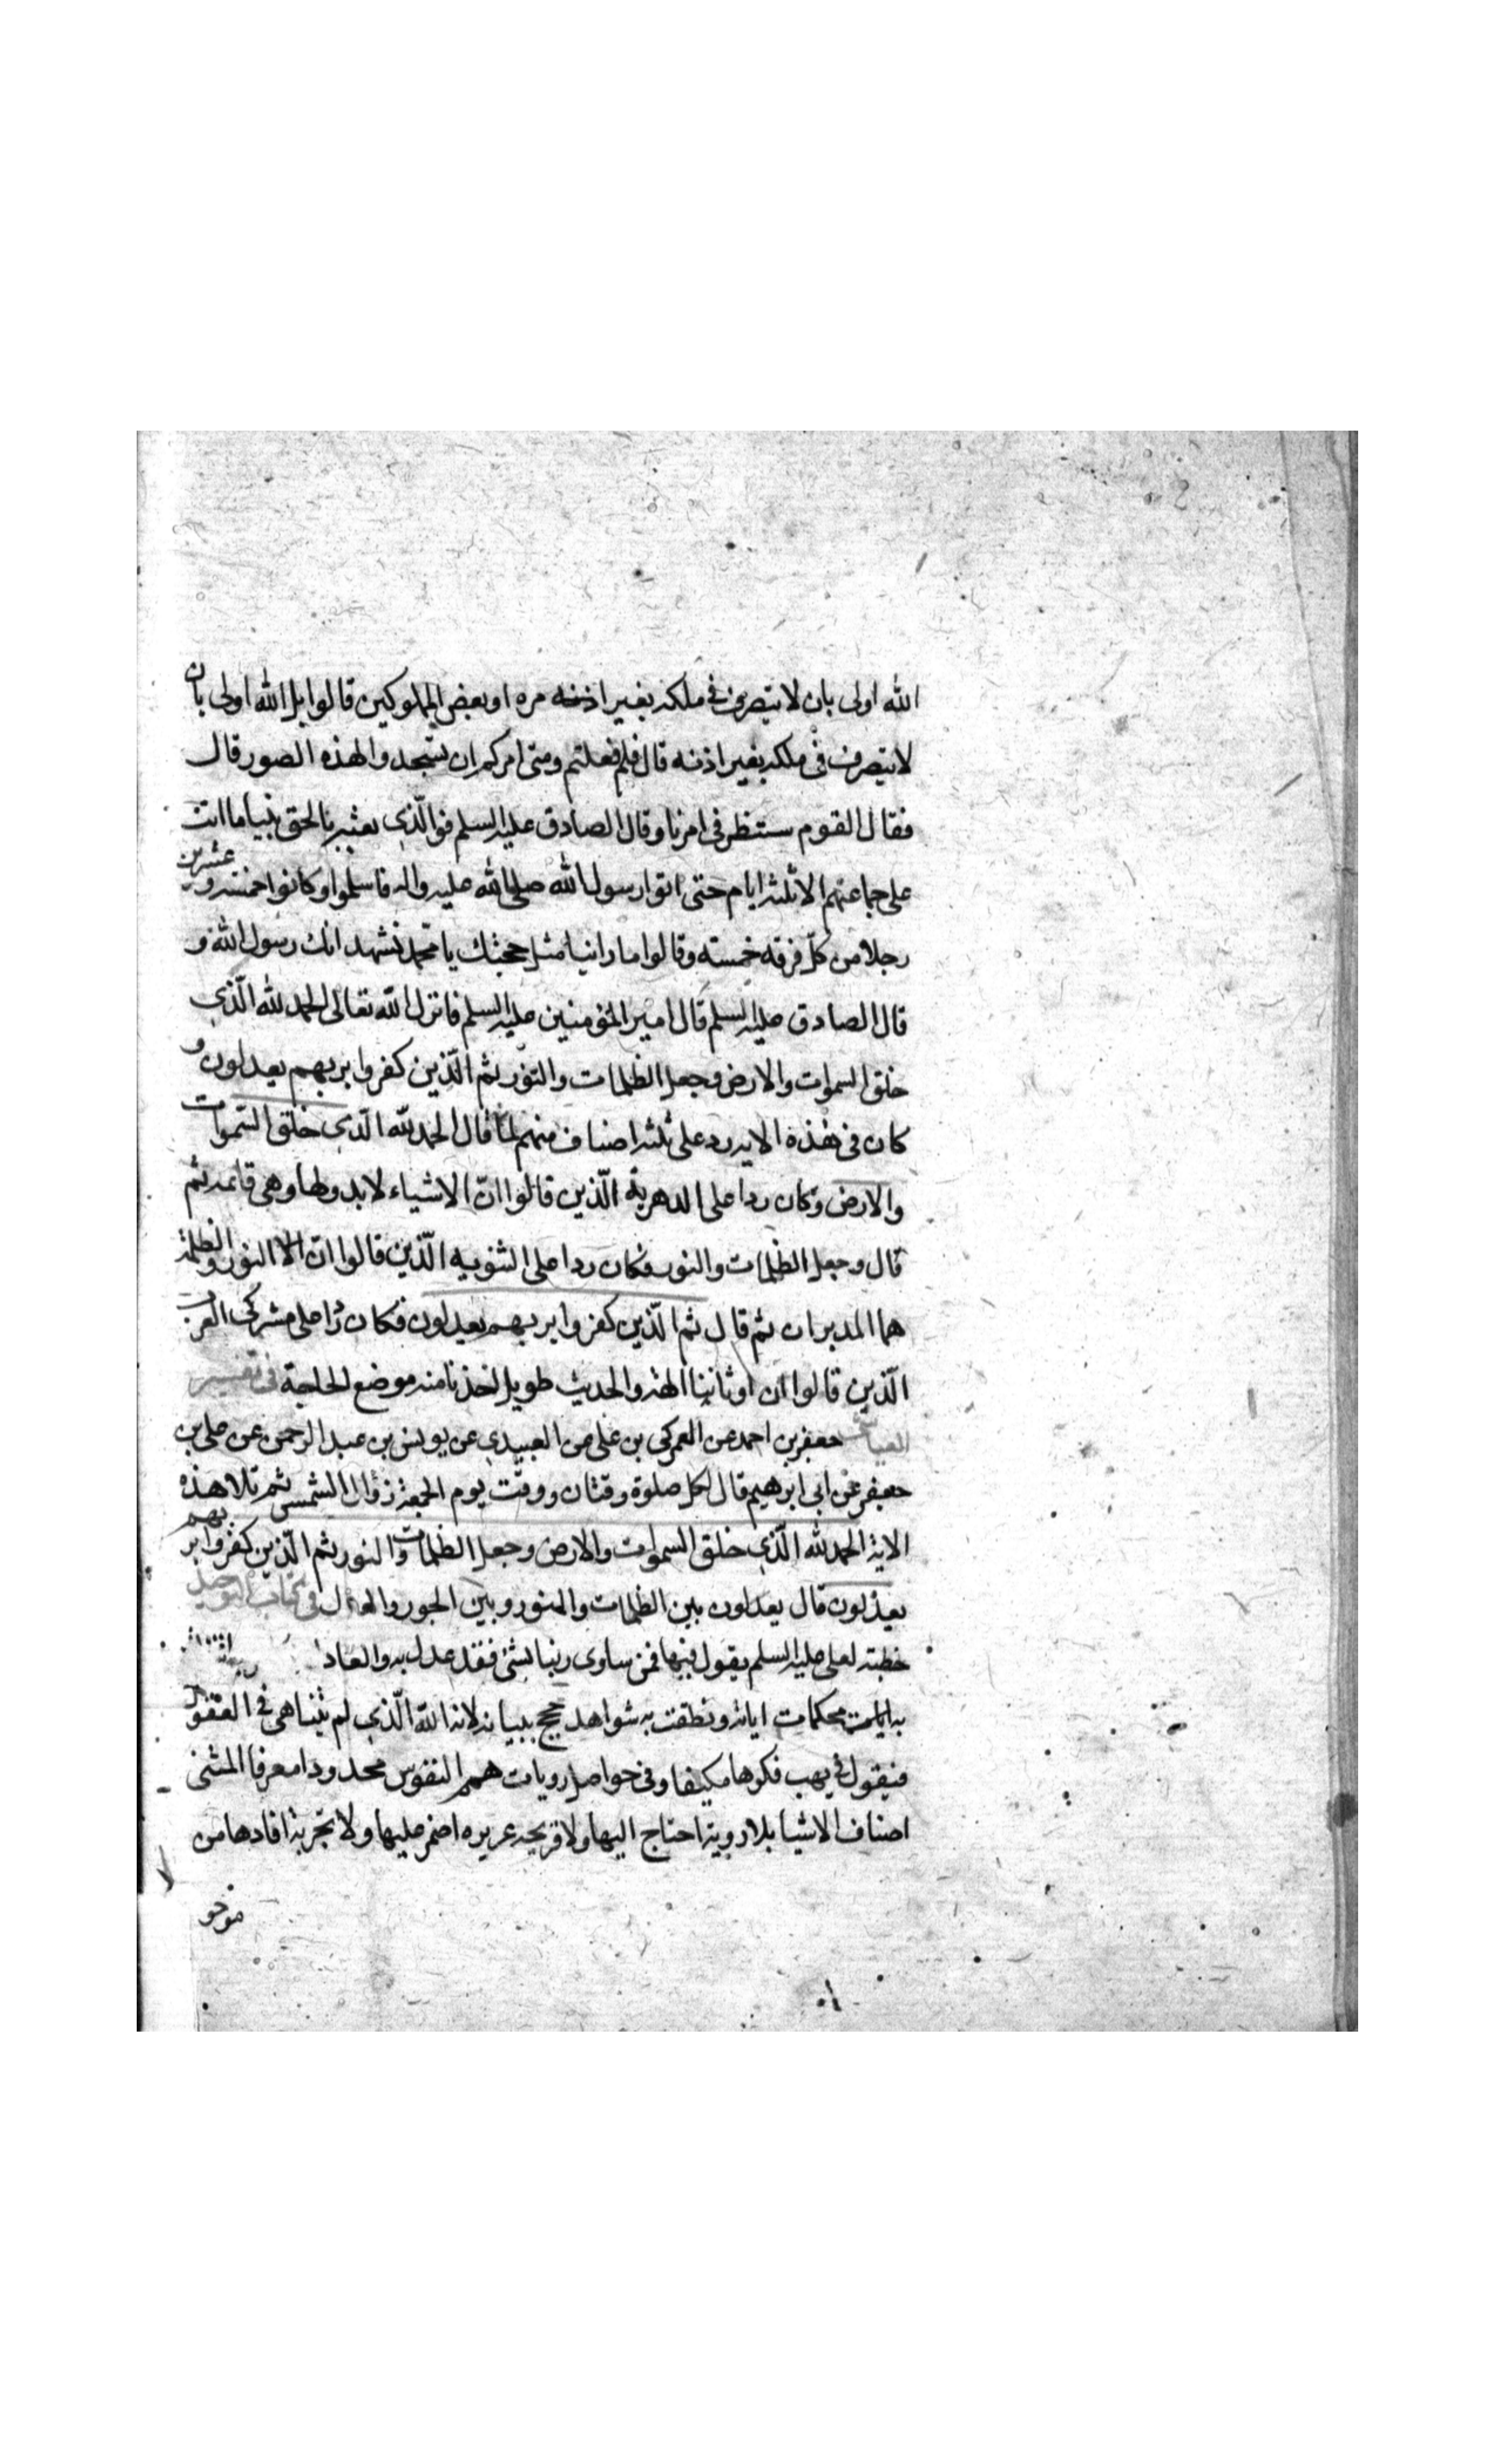 الله اولی بان لا یتصرف فی ملکه بغیر اذنه مره او بعض المملوکین قالوا بل الله اولی بان
لا یتصرف فی ملکه بغیر اذنه قال فلم فعلتم ومتی امرکم ان تسجدوا لهذه الصور قال
فقال القوم سننظر فی امرنا وقال الصادق علیه السلم فوالّذی بعثه بالحق نبیا ما اتت
علی جماعتهم الا ثلثه ایام حتی اتوا رسول الله صلی الله علیه واله فاسلموا وکانوا خمسه وعشرین
رجلا من کلّ فرقه خمسته وقالوا ما راینا مثل حجتك یا محمّد نشهد انك رسول الله و
قال الصادق علیه السلم قال امیر المؤمنین علیه السلم فانزل الله تعالی الحمد لله الّذی
خلق السموات والارض وجعل الظلمات والنّور ثم الّذین کفروا بربهم یعدلون و
کان فی هذه الایه رد علی ثلثه اصناف منهم لمّا قال الحمد لله الّذی خلق السّموات
والارض وکان ردا علی الدهریه الّذین قالوا انّ الاشیاء لا بدو لها وهی قائمه ثم
قال وجعل الظلمات والنور وکان ردا علی الثنویه الّذین قالوا انّ النور والظلمة
هما المدبران ثم قال ثم الّذین کفروا بربهم یعدلون فکان ردّا علی مشرکی العرب
الّذین قالوا ان اوثاننا الهه والحدیث طویل اخذنا منه موضع الحاجة فی تفسیر
العیاشی جعفر بن احمد عن العمرکی بن علی عن العبیدی عن یونس بن عبد الرحمن عن علی بن
جعفر عن ابی ابرهیم قال لکل صلوة وقتان ووقت یوم الجمعة زوال الشمس ثم تلا هذه
الایة الحمد لله الّذی خلق السموات والارض وجعل الظلمات والنور ثم الّذین کفروا بربهم
یعدلون قال یعدلون بین الظلمات والنور وبین الجور والعدل فی کتاب التوحید
خطبة لعلی علیه السلم یقول فیها فمن ساوی ربنا بشئ فقد عدل به والعادل
به محکمات ایاته ونطقت به شواهد حجج بیناته لانه الله الّذی لم یتناهی فی العقول
فیقول فی مهب فکرها مکیفا وفی حواصل رویات همم النفوس محدودا مصرفا المنشی
اصناف الاشیا بلا رویة احتاج الیها ولا قریحه غریزه اضمر علیها ولا تجربة افادها من